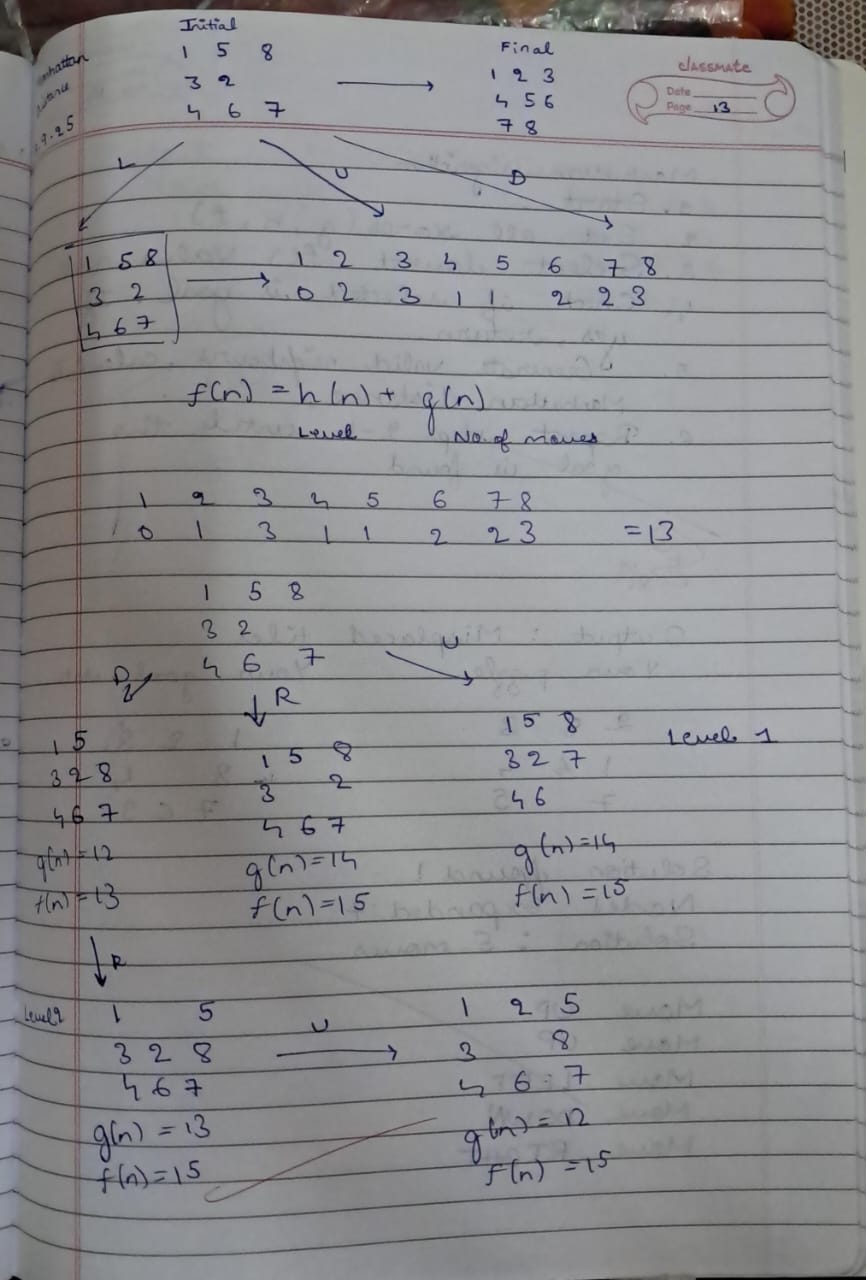 Initial
1 5 8
3 2
4 6 7
Final
1 2 3
4 5 6
7 8
classmate
Date
Page 13
L U D
1 5 8
3 2
4 6 7
1 2 3 4 5 6 7 8
0 2 3 1 1 2 2 3
f(n) = h(n) + g(n)
Level No. of moves
1 2 3 4 5 6 7 8
0 1 3 1 1 2 2 3 = 13
1 5 8
3 2
4 6 7
D R U
1 5
3 2 8
4 6 7
g(n) = 12
f(n) = 13
1 5 8
3 2
4 6 7
g(n) = 14
f(n) = 15
1 5 8
3 2 7
4 6
g(n) = 14
f(n) = 15
Level 1
R
Level 2
1 5
3 2 8
4 6 7
g(n) = 13
f(n) = 15
U
1 2 5
3 8
4 6 7
g(n) = 12
f(n) = 15